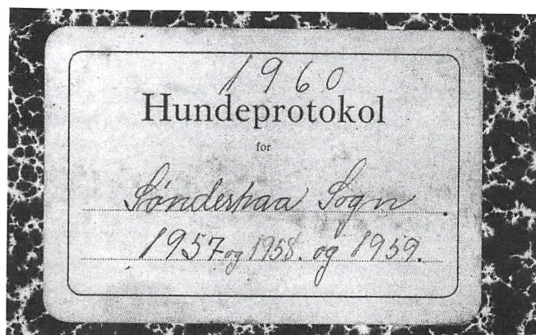 1960
Hundeprotokol
for
Sønderhaa Sogn
1957 og 1958. og 1959.